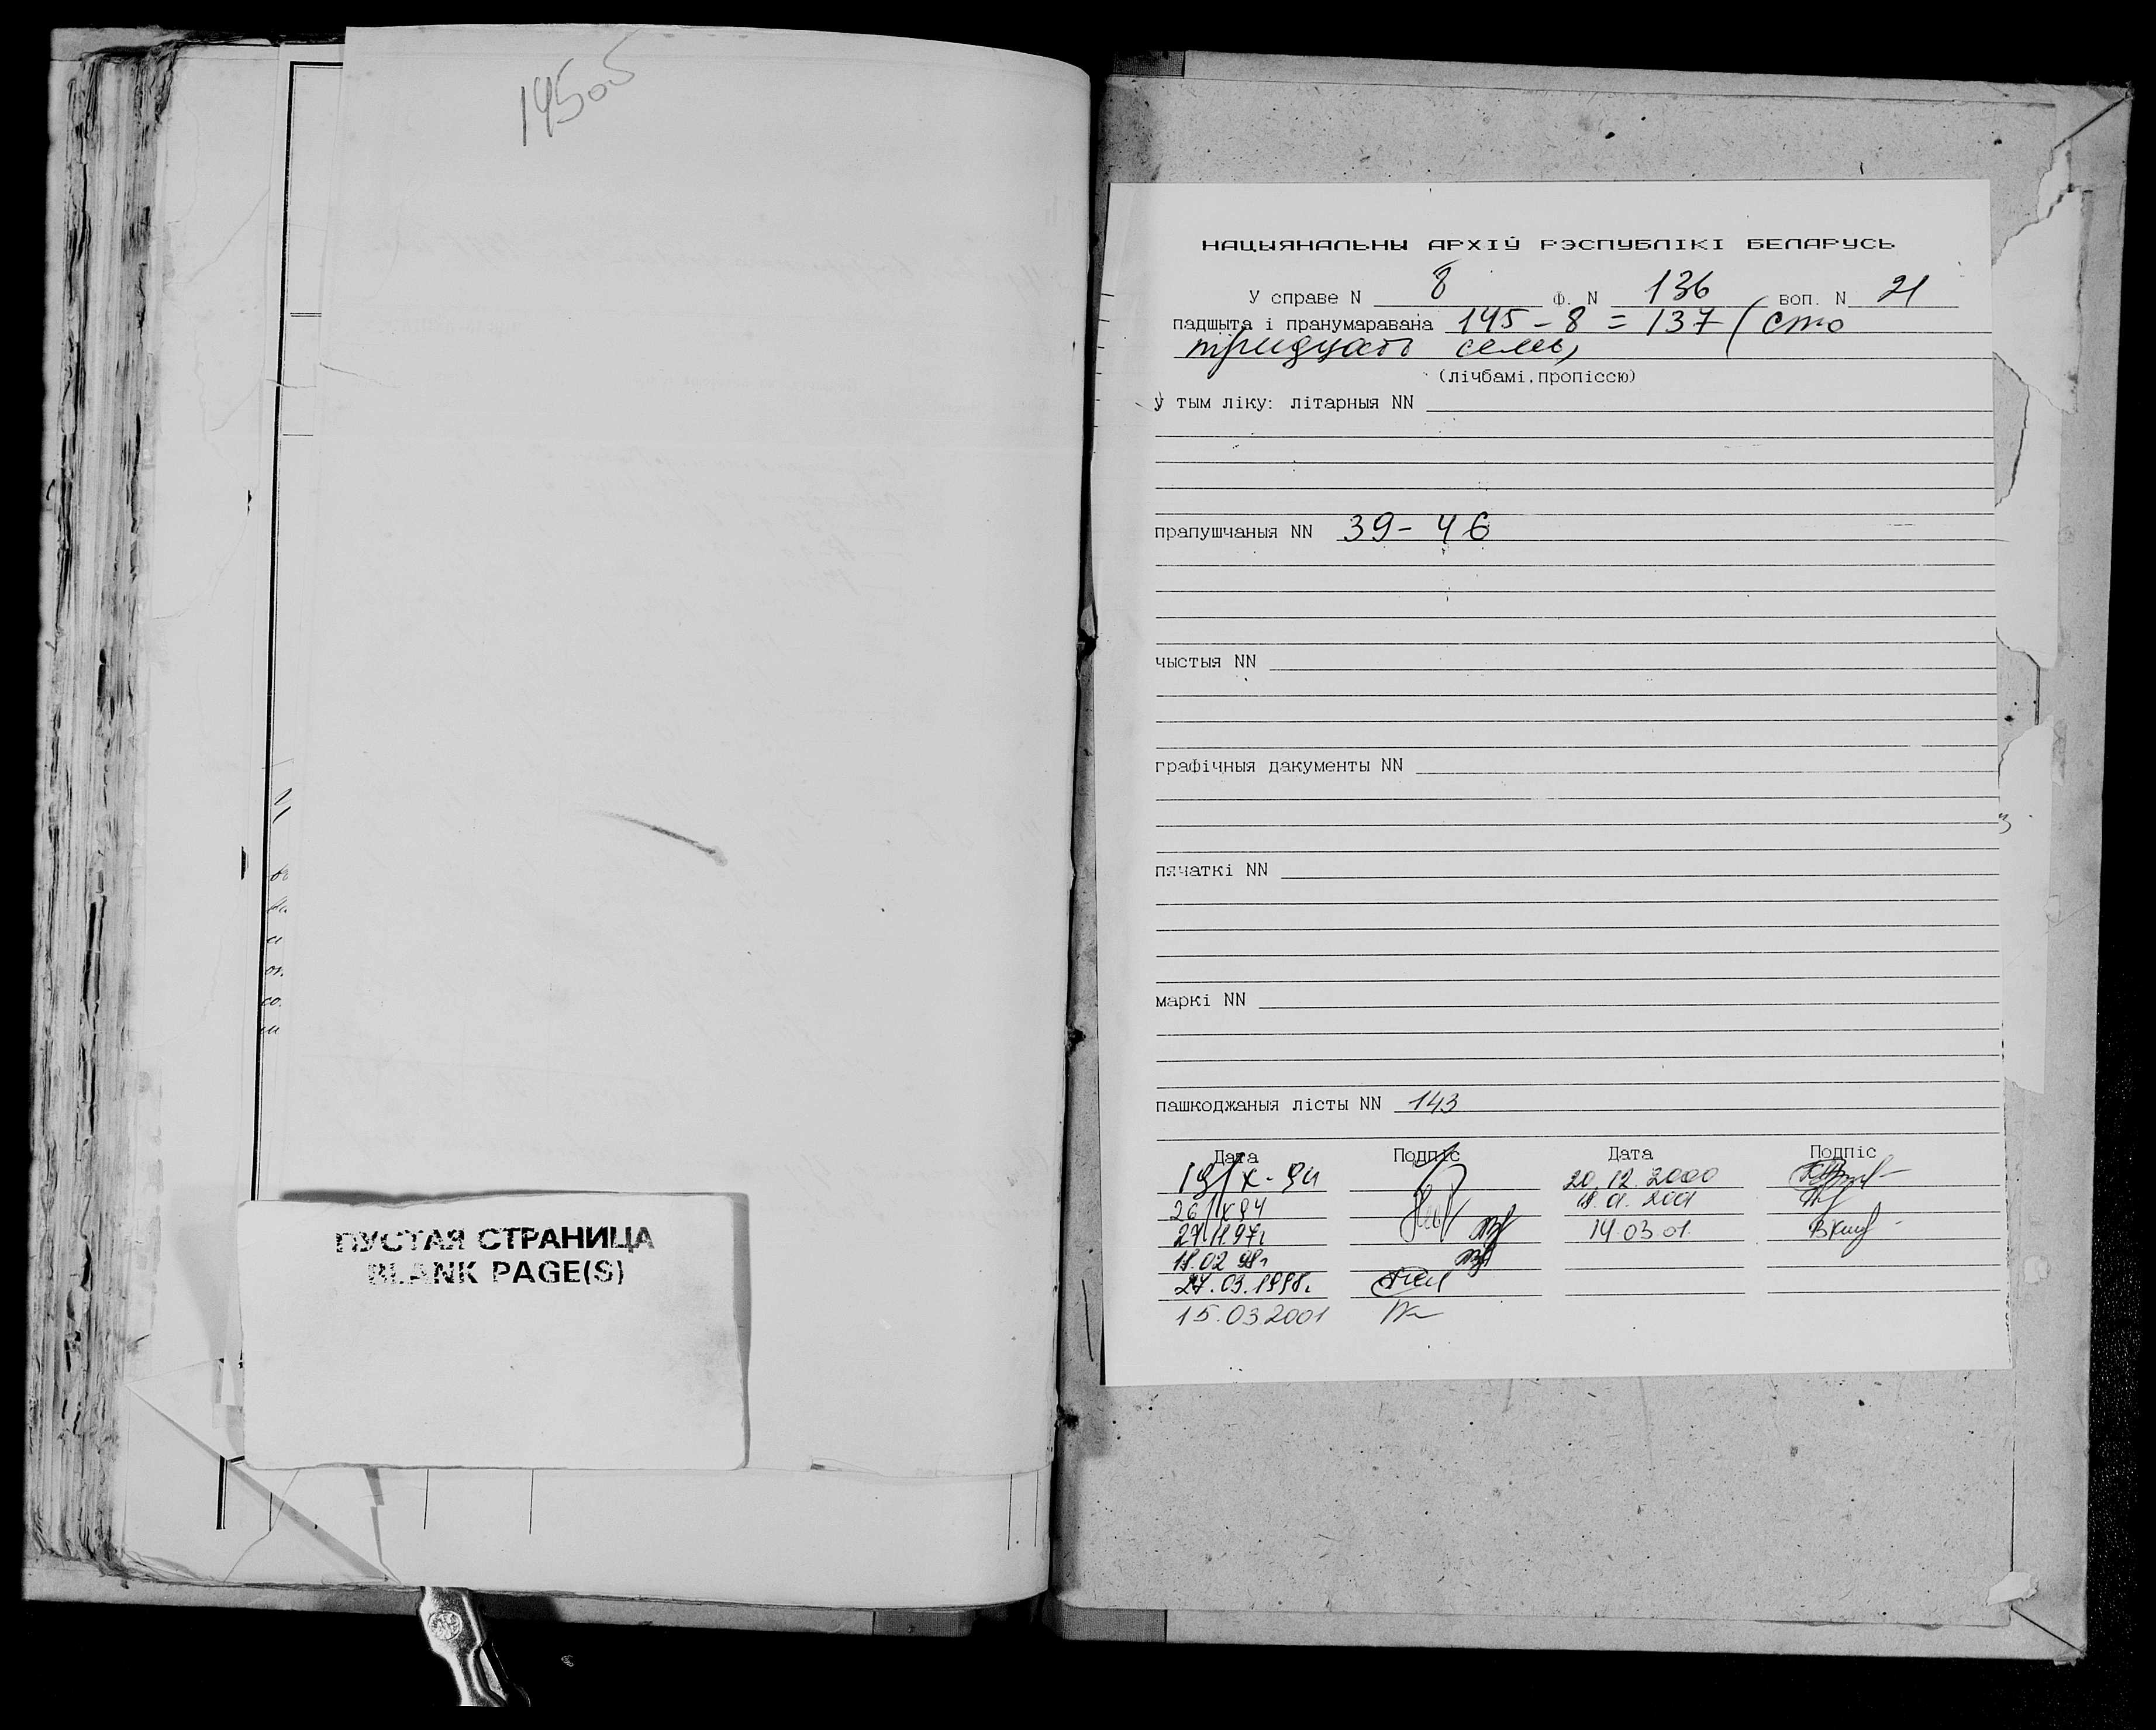 145об
ПУСТАЯ СТРАНИЦА
BLANK PAGE(S)
НАЦЫЯНАЛЬНЫ АРХІЎ РЭСПУБЛІКІ БЕЛАРУСЬ
У справе N 8 Ф. N 136 воп. N 21
падшыта і пранумаравана 145 - 8 = 137 (сто
тридцать семь)
(лічбамі, пропіссю)
у тым ліку: літарныя NN
прапушчаныя NN 39-46
чыстыя NN
графічныя дакументы NN
пячаткі NN
маркі NN
пашкоджаныя лісты NN 143
Дата Подпіс Дата Подпіс
19/X-94 20.12.2000
26/X 94 18.01.2001
14.03.01.
18.02 98г
27.03.1998г.
15.03.2001